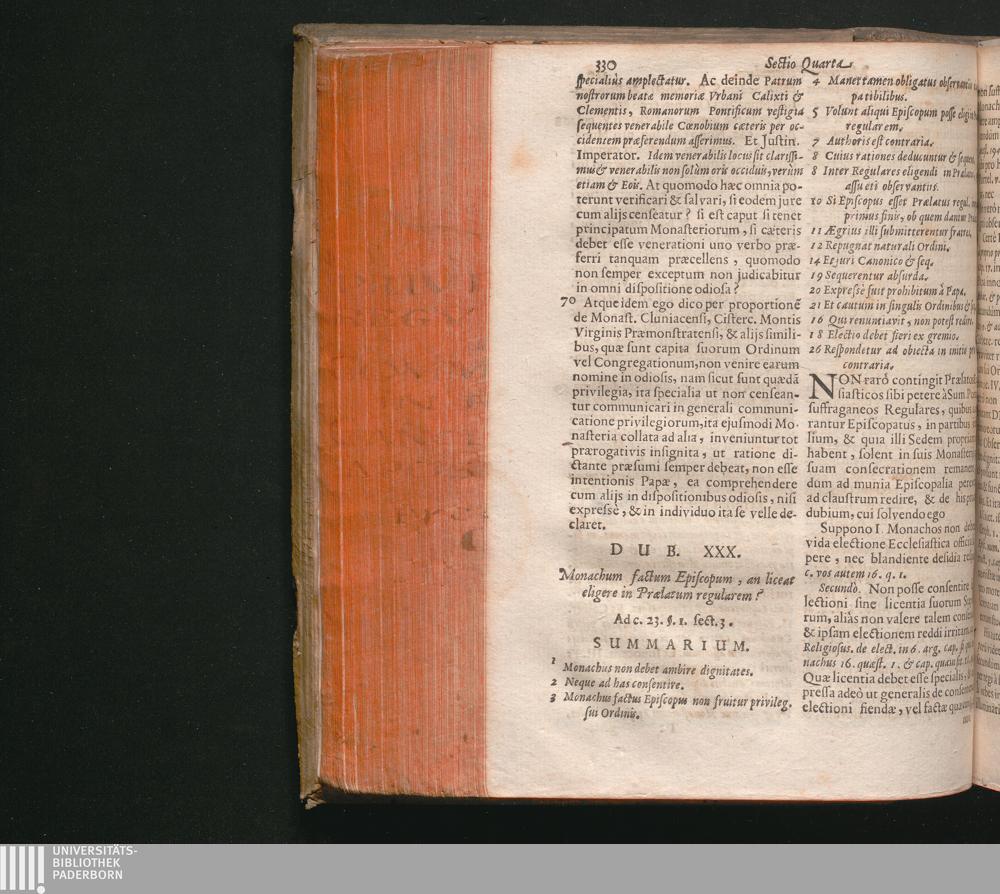 330 Sectio Quarta
specialiùs amplectatur. Ac deinde Patrum
nostrorum beatæ memoriæ Vrbani Calixti &
Clementis, Romanorum Pontificum vestigia
sequentes venerabile Cœnobium cæteris per oc-
cidentem præferendum asserimus. Et Justin.
Imperator. Idem venerabilis locus sit clarissi-
mus & venerabilis non solùm oris occiduis, verùm
etiam & Eois. At quomodo hæc omnia po-
terunt verificari & salvari, si eodem jure
cum alijs censeatur? si est caput si tenet
principatum Monasteriorum, si cæteris
debet esse venerationi uno verbo præ-
ferri tanquam præcellens, quomodo
non semper exceptum non judicabitur
in omni dispositione odiosa?
70 Atque idem ego dico per proportionẽ
de Monast. Cluniacensi, Cisterc. Montis
Virginis Præmonstratensi, & alijs simili-
bus, quæ sunt capita suorum Ordinum
vel Congregationum, non venire earum
nomine in odiosis, nam sicut sunt quædã
privilegia, ita specialia ut non censean-
tur communicari in generali communi-
catione privilegiorum, ita ejusmodi Mo-
nasteria collata ad alia, inveniuntur tot
prærogativis insignita, ut ratione di-
ctante præsumi semper debeat, non esse
intentionis Papæ, ea comprehendere
cum alijs in dispositionibus odiosis, nisi
expressè, & in individuo ita se velle de-
claret.
DUB. XXX.
Monachum factum Episcopum, an liceat
eligere in Prælatum regularem?
Ad c. 23. §. 1. sect. 3.
SUMMARIUM.
1 Monachus non debet ambire dignitates.
2 Neque ad has consentire.
3 Monachus factus Episcopus non fruitur privileg.
sui Ordinis.
4 Manet tamen obligatus observantiis
patibilibus.
5 Volunt aliqui Episcopum posse eligi
regularem.
7 Authoris est contraria.
8 Cuius rationes deducuntur & sequent.
8 Inter Regulares eligendi in Prælatos
assueti observantiis.
10 Si Episcopus esset Prælatus regul.
primus finis, ob quem dantur
11 Ægrius illi submitterentur fratres.
12 Repugnat naturali Ordini.
14 Et juri Canonico & seq.
19 Sequerentur absurda.
20 Expressè fuit prohibitum à Papa.
21 Et cautum in singulis Ordinibus
16 Qui renuntiavit, non potest redire.
18 Electio debet fieri ex gremio.
26 Respondetur ad obiecta in initio
contraria.
NON raró contingit Prælatos
siasticos sibi petere à Sum.
suffraganeos Regulares, quibus
rantur Episcopatus, in partibus
lium, & quia illi Sedem propriam
habent, solent in suis Monasteriis
suam consecrationem remanere
dum ad munia Episcopalia
ad claustrum redire, & de his
dubium, cui solvendo ego
Suppono I. Monachos non
vida electione Ecclesiastica officia
pere, nec blandiente desidia
c. vos autem 16. q. 1.
Secundò. Non posse consentire
lectioni sine licentia suorum
rum, aliàs non valere talem
& ipsam electionem reddi irritam
Religiosus. de elect. in 6. arg. cap. si
nachus 16. quæst. 1. & cap.
Quæ licentia debet esse specialis,
pressa adeò ut generalis de
electioni fiendæ, vel factæ
UNIVERSITÄTS-
BIBLIOTHEK
PADERBORN